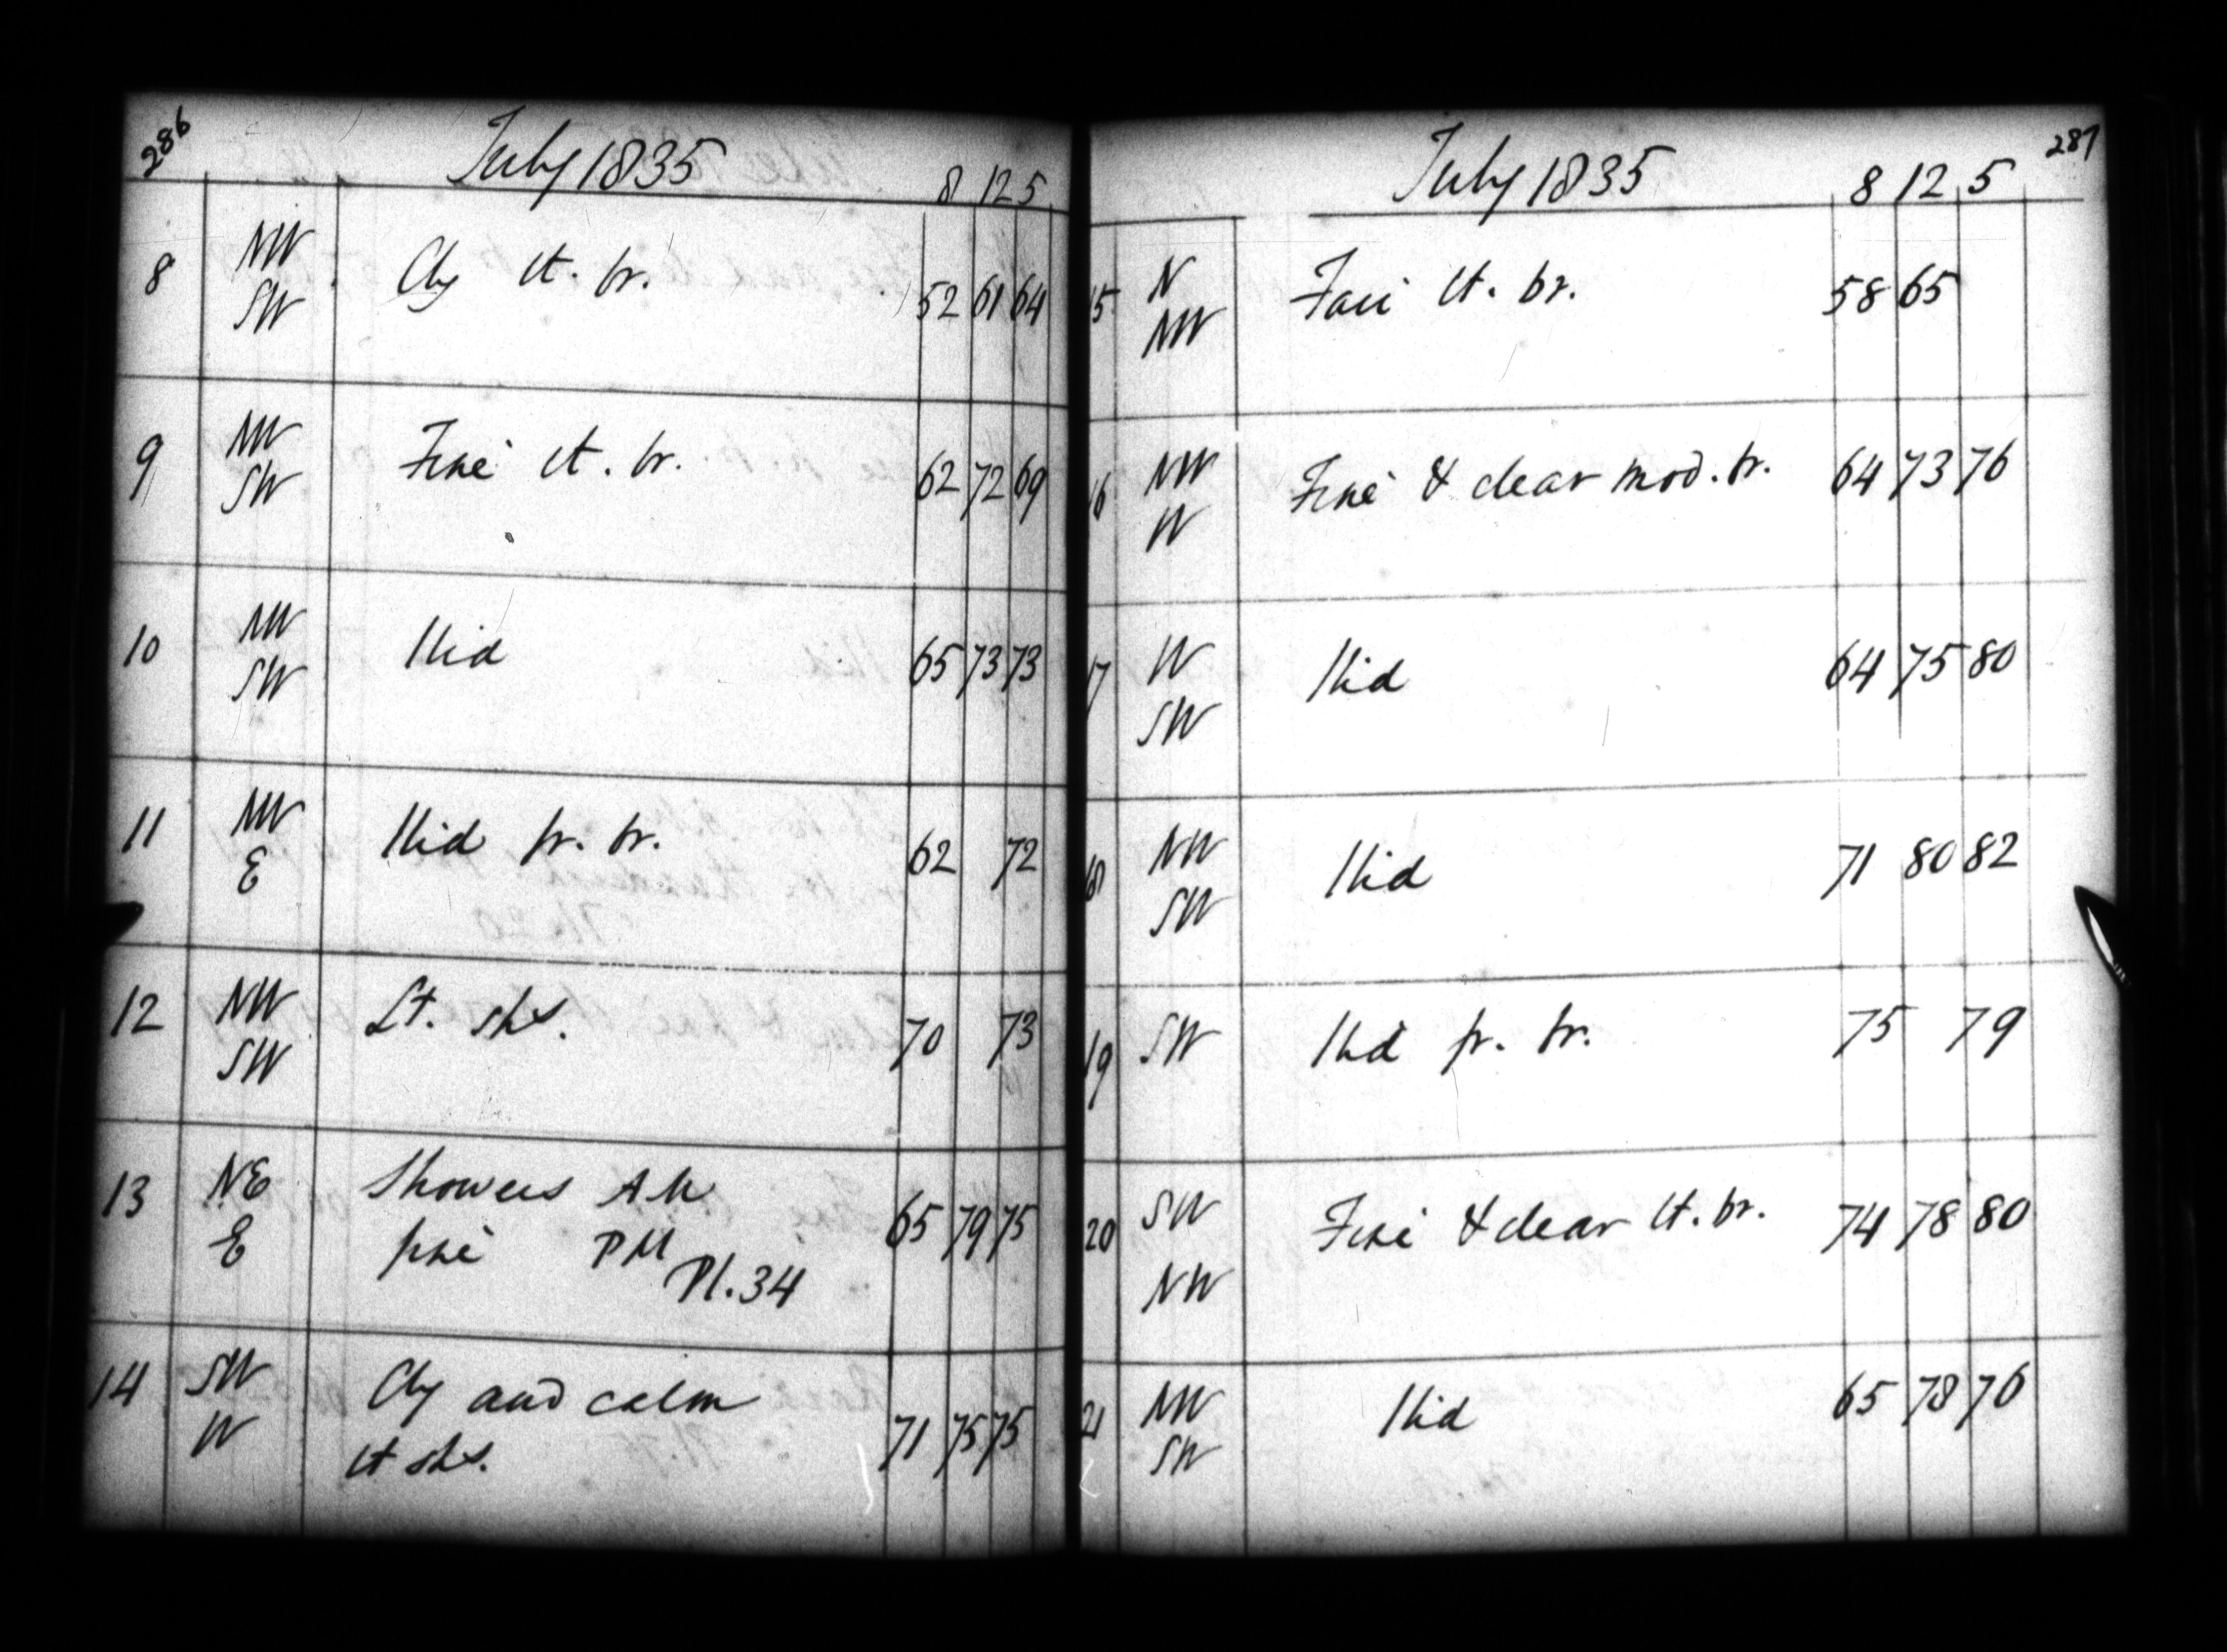 286
July 1835
8 12 5
8 NW Cly lt. br. 52 61 64
SW
9 NW Fine lt. br. 62 72 69
SW
10 NW Ibid 65 73 73
SW
11 NW Ibid fr. br. 62 72
E
12 NW Lt. shs. 70 73
SW
13 NE Showers AM 65 79 75
E fine PM
Pl. 34
14 SW Cly and calm 71 75 75
W lt shs.
287
July 1835
8 12 5
15 N Fair lt. br. 58 65
NW
16 NW Fine & clear mod. br. 64 73 76
W
17 W Ibid 64 75 80
SW
18 NW Ibid 71 80 82
SW
19 SW Ibd fr. br. 75 79
20 SW Fine & clear lt. br. 74 78 80
NW
21 NW Ibid 65 78 76
SW